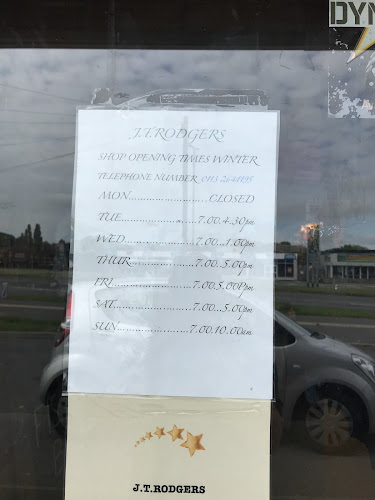 DYN
J.T.RODGERS
SHOP OPENING TIMES WINTER
TELEPHONE NUMBER 0113 2648195
MON......................CLOSED
TUE......................7.00.4.30pm
WED....................7.00...1.00pm
THUR..................7.00..5.00pm
FRI......................7.00.5.00Ppm
SAT.....................7.00...5.00pm
SUN....................7.00.10.00am
J.T.RODGERS